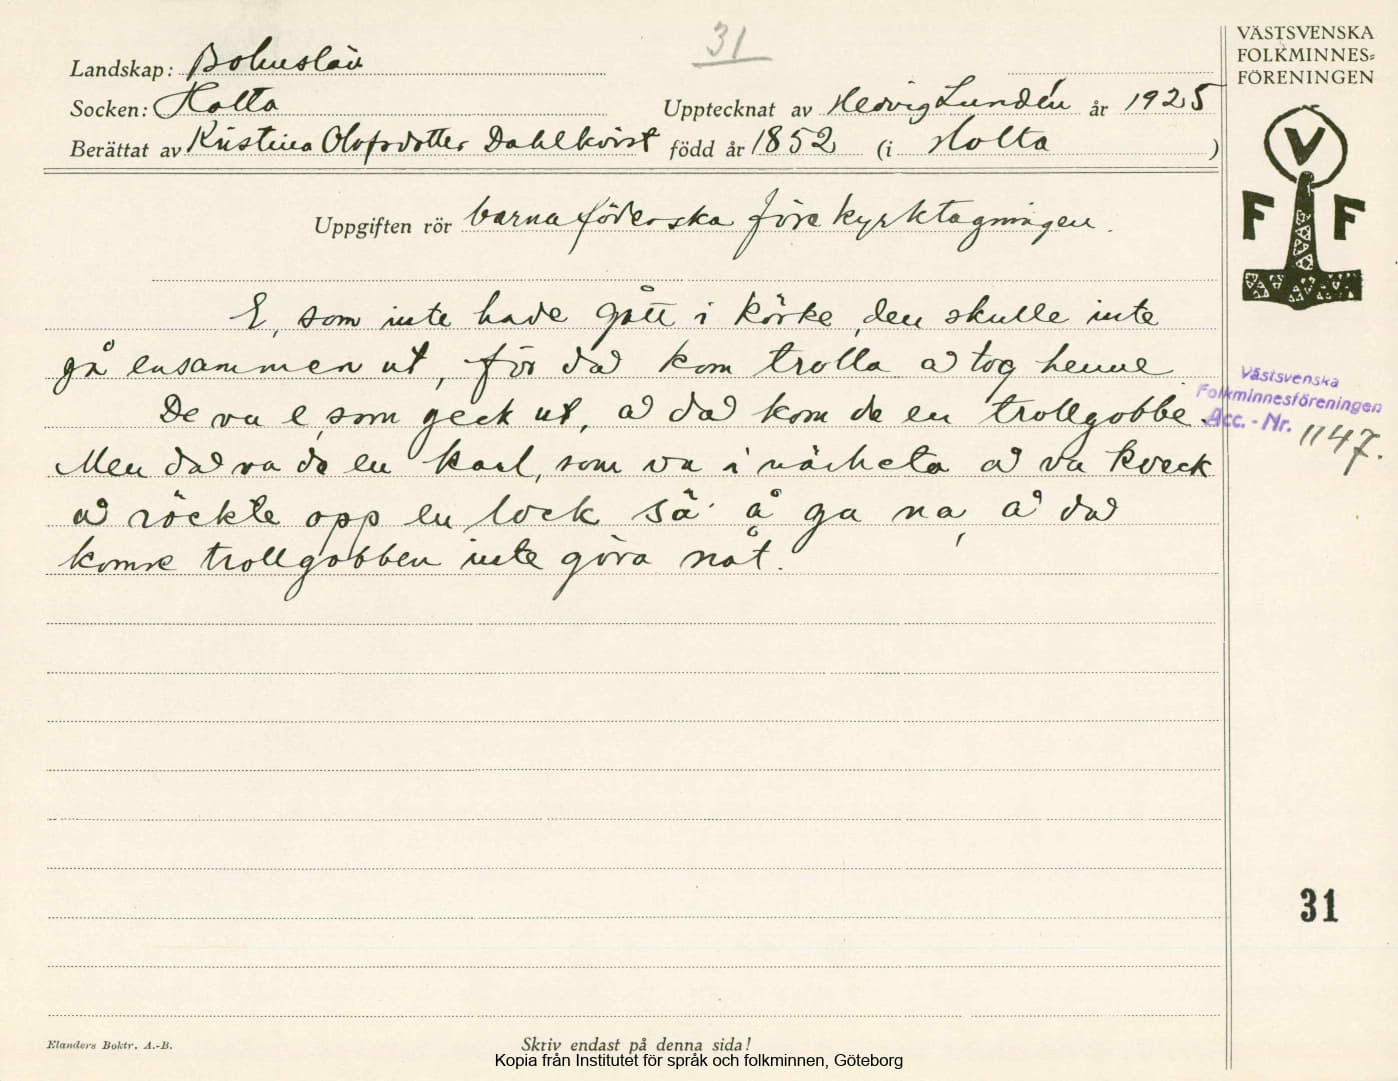 31
Landskap: Bohuslän
Socken: Holta
Upptecknat av Hedvig Lundén år 1925
Berättat av Kristina Olofsdotter Dahlkvist född år 1852 (i Holta )
Uppgiften rör barnaföderska före kyrktagningen.
E, som inte hade gått i körke, den skulle inte
gå ensammen ut, för då kom trolla å tog henne.
De va e, som geck ut, å då kom de en trollgobbe.
Men då va de en karl, som va i närheta å va kveck
å röckte opp en lock så å ga na, å då
komne trollgobben inte göra nåt.
VÄSTSVENSKA
FOLKMINNES=
FÖRENINGEN
V
F F
Västsvenska
Folkminnesföreningen
Acc. - Nr. 1147.
31
Elanders Boktr. A.-B.
Skriv endast på denna sida!
Kopia från Institutet för språk och folkminnen, Göteborg